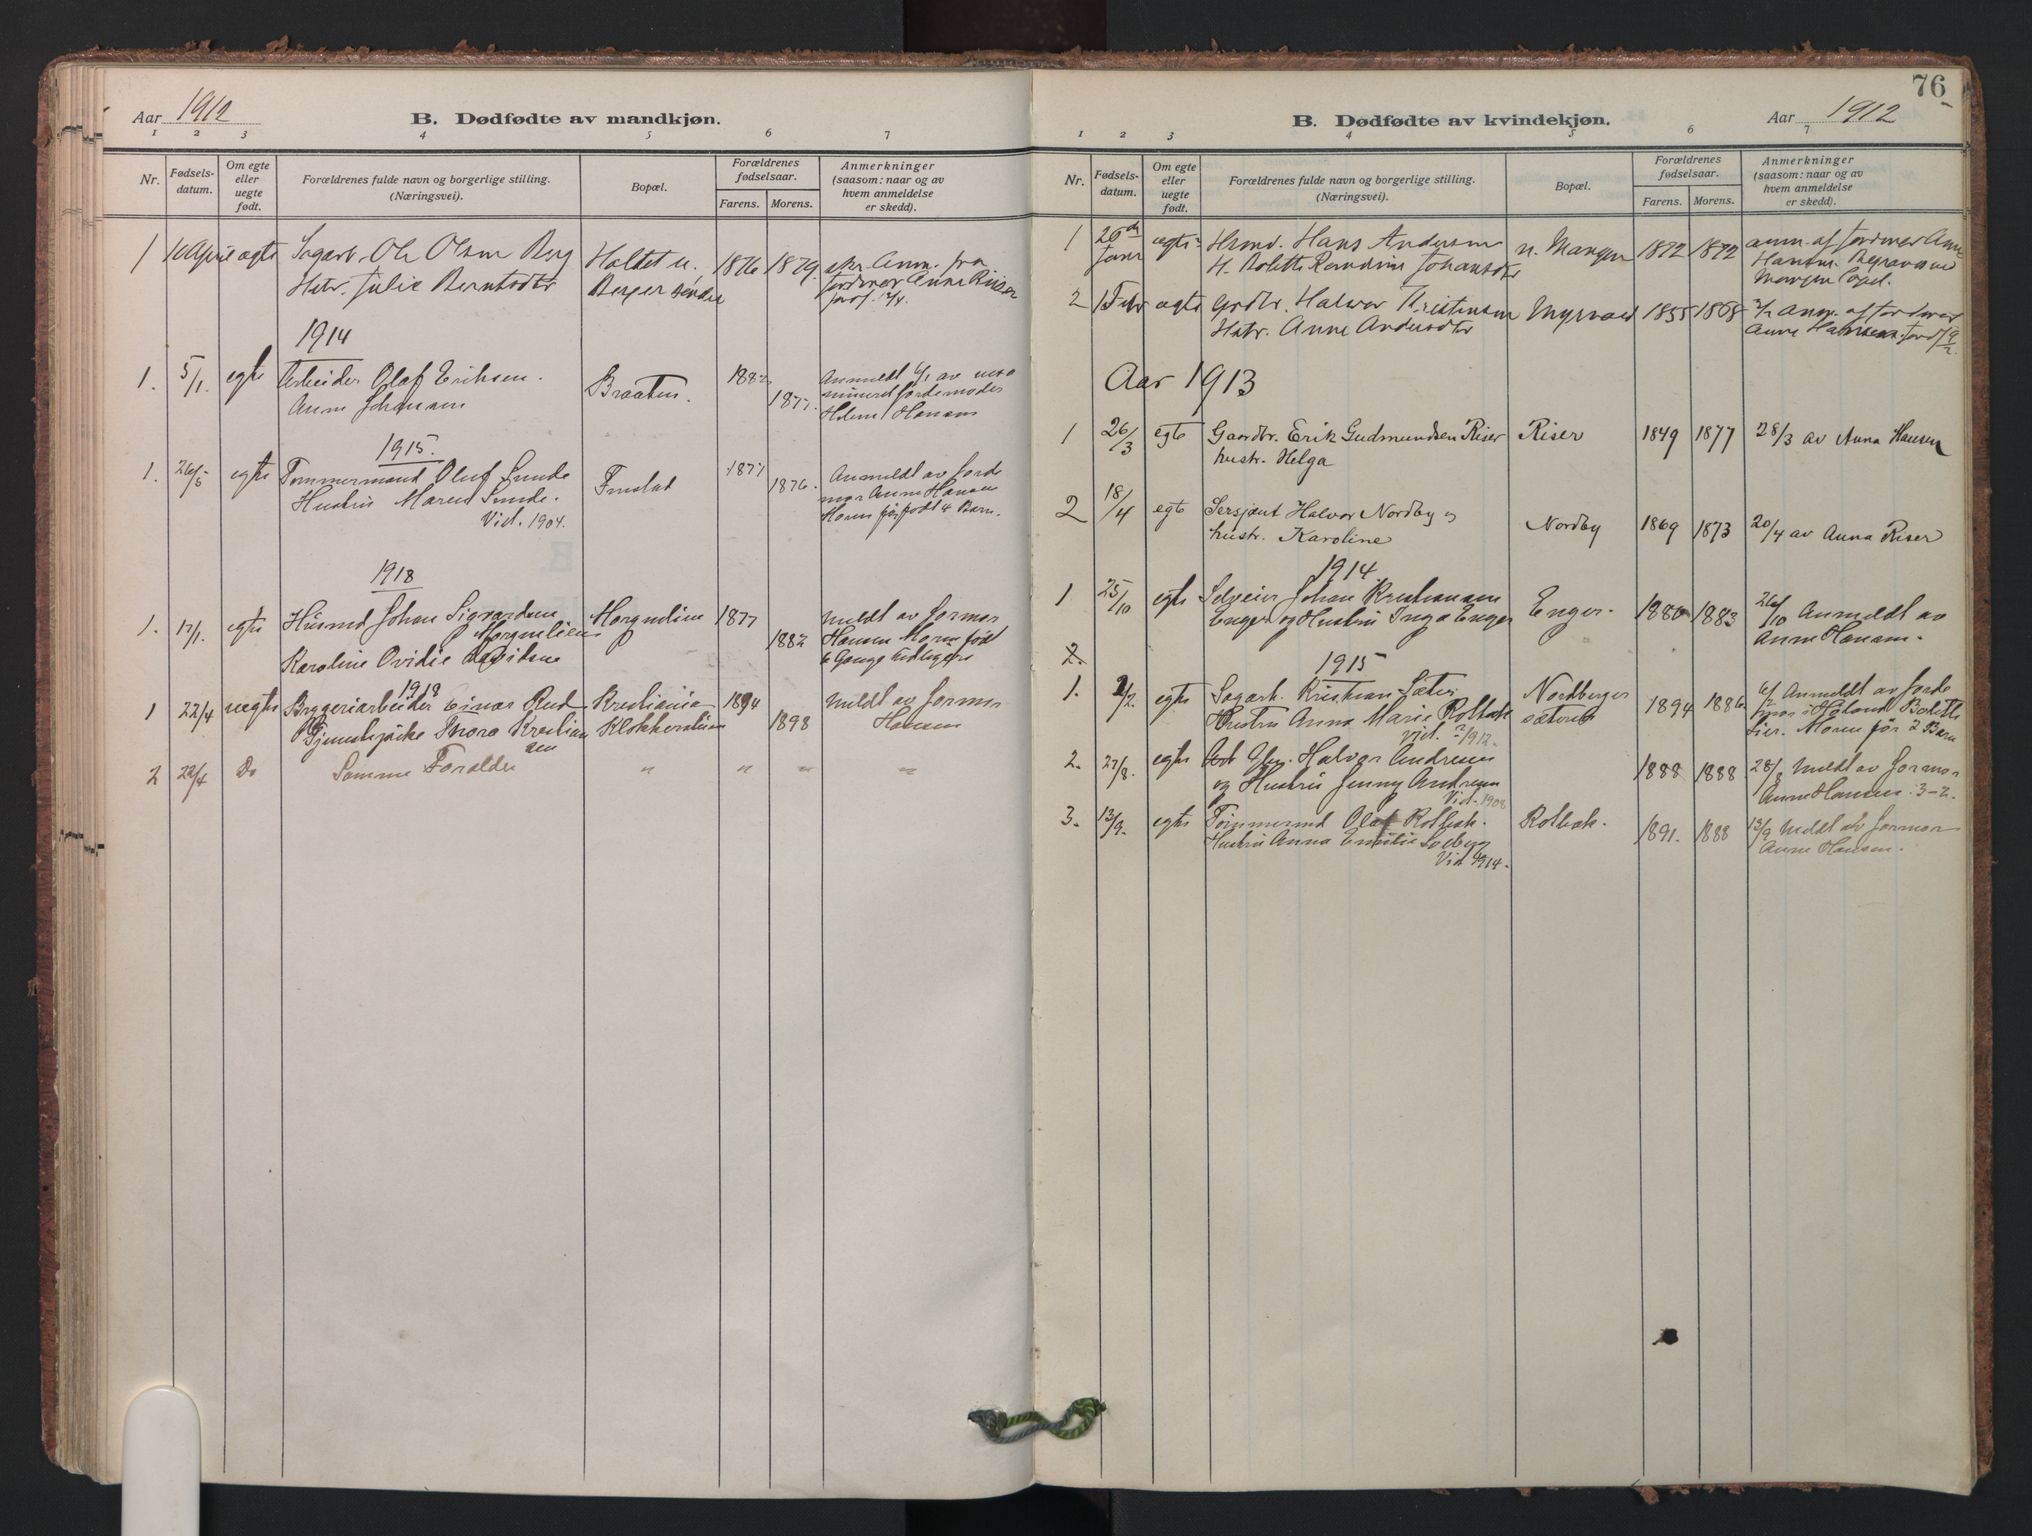 Aar 1912
B. Dødfødte av mandkjøn.
1 2 3 4 5 6 7
Nr. Fødsels-datum. Om egte eller uegte født. Forældrenes fulde navn og borgerlige stilling. (Næringsvei). Bopæl. Forældrenes fødselsaar. Farens. Morens. Anmerkninger (saasom: naar og av hvem anmeldelse er skedd).
1 10 April egte Sagarb. Ole Olsen Berg Holtet u. 1876 1879
Hstr. Julie Berntsdtr Berger søndre jordmor Anne Riiser
1914
1. 5/1. egte Arbeider Olaf Eriksen. Braaten. 1882 Anmeldt 6/1 av
Anne Johansen 1877. Hansen
1915.
1. 26/5 egte Tømmermand Oluf Sunde Finstad 1877 Anmeldt av Jorde
Hustru Maren Sunde. 1876. mor Anne Hansen
Vid. 1904. Moren før født 4 Barn.
1918
1. 17/1. egte Husmd Johan Sigvardsen Morgenlien 1877 Meldt av Jormor
Morgenlien 1882 Hansen Moren født
Karoline Ovidie Davidsen 6 Gange tidligere
1918
1 22/4 uegte Bryggeriarbeider Einar Rud Kristiania 1894 Meldt av Jormor
Tjenestepike Thora Kristian Klokkerstuen 1898 Hansen
sen
2 22/4 Do Samme Forælder " " " "
76
B. Dødfødte av kvindekjøn.
Aar 1912
1 2 3 4 5 6 7
Nr. Fødsels-datum. Om egte eller uegte født. Forældrenes fulde navn og borgerlige stilling. (Næringsvei). Bopæl. Forældrenes fødselsaar. Farens. Morens. Anmerkninger (saasom: naar og av hvem anmeldelse er skedd).
1 26de Hans Andersen n. Mangen 1872 1872 anm. af jordmor Anne
Januar egte H. Bolette Johansdtr Hansen.
2 1 Febr egte Grdbr. Halvor Kristensen Myrvold 1855 1868 anm. af jordmor
Hstr. Anne Andersdtr Anne Hansen.
Aar 1913
1 26/3 egte Gaardbr. Erik Gudmundsen Riser Riser 1849 1877 28/3 av Anna Hansen
hustr. Helga
2 18/4 egte Sersjant Halvor Nordby og Nordby 1869 1873 20/4 av Anna Riser
hustr. Karoline
1914
1 25/10 egte Selveier Johan Kristiansen Enger. 1880 1883 26/10 Anmeldt av
Enger og Hustru Inga Enger Anne Hansen.
2.
1915
1. 2/2. egte Sagarb. Kristian Sæter Nordberg- 1894 1886 6/2 Anmeldt av Jorde
Hustru Anna Marie Rolbæk sæteren mor i Høland Bolette
Vid. 1912. Lier. Moren før 2 Barn
2. 27/8. egte Halvor Andresen 1888 1888 28/8 Meldt av Jormor
og Hustru Jenny Andresen Anne Hansen. 3-2.
Vid. 1908
3. 13/9. egte Tømmermd Olaf Rolbæk. Rolbæk. 1891. 1888 13/9 Meldt av Jormor
Hustru Anna Emilie Solberg Anne Hansen.
Vid 1914.